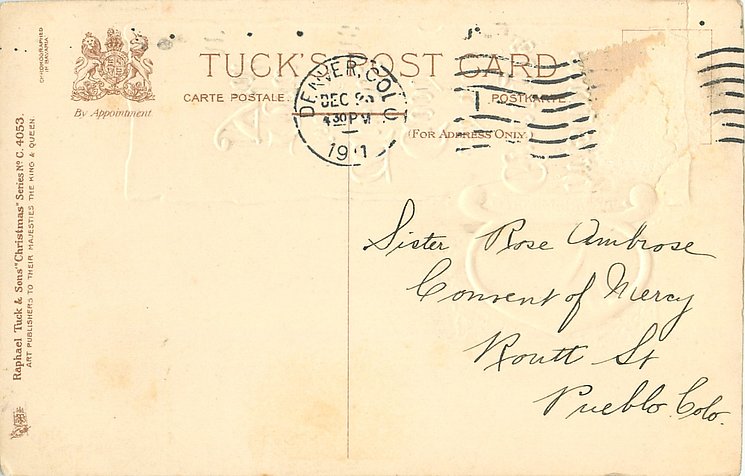 TUCK'S POST CARD
CARTE POSTALE. POSTKARTE
(FOR ADDRESS ONLY)
By Appointment
CHROMOGRAPHED
IN BAVARIA
Raphael Tuck & Sons' "Christmas" Series No C. 4053.
ART PUBLISHERS TO THEIR MAJESTIES THE KING & QUEEN.
DENVER, COLO
DEC
4 30 PM
1911
1
Sister Rose Ambrose
Convent of Mercy
Routt St
Pueblo. Colo.